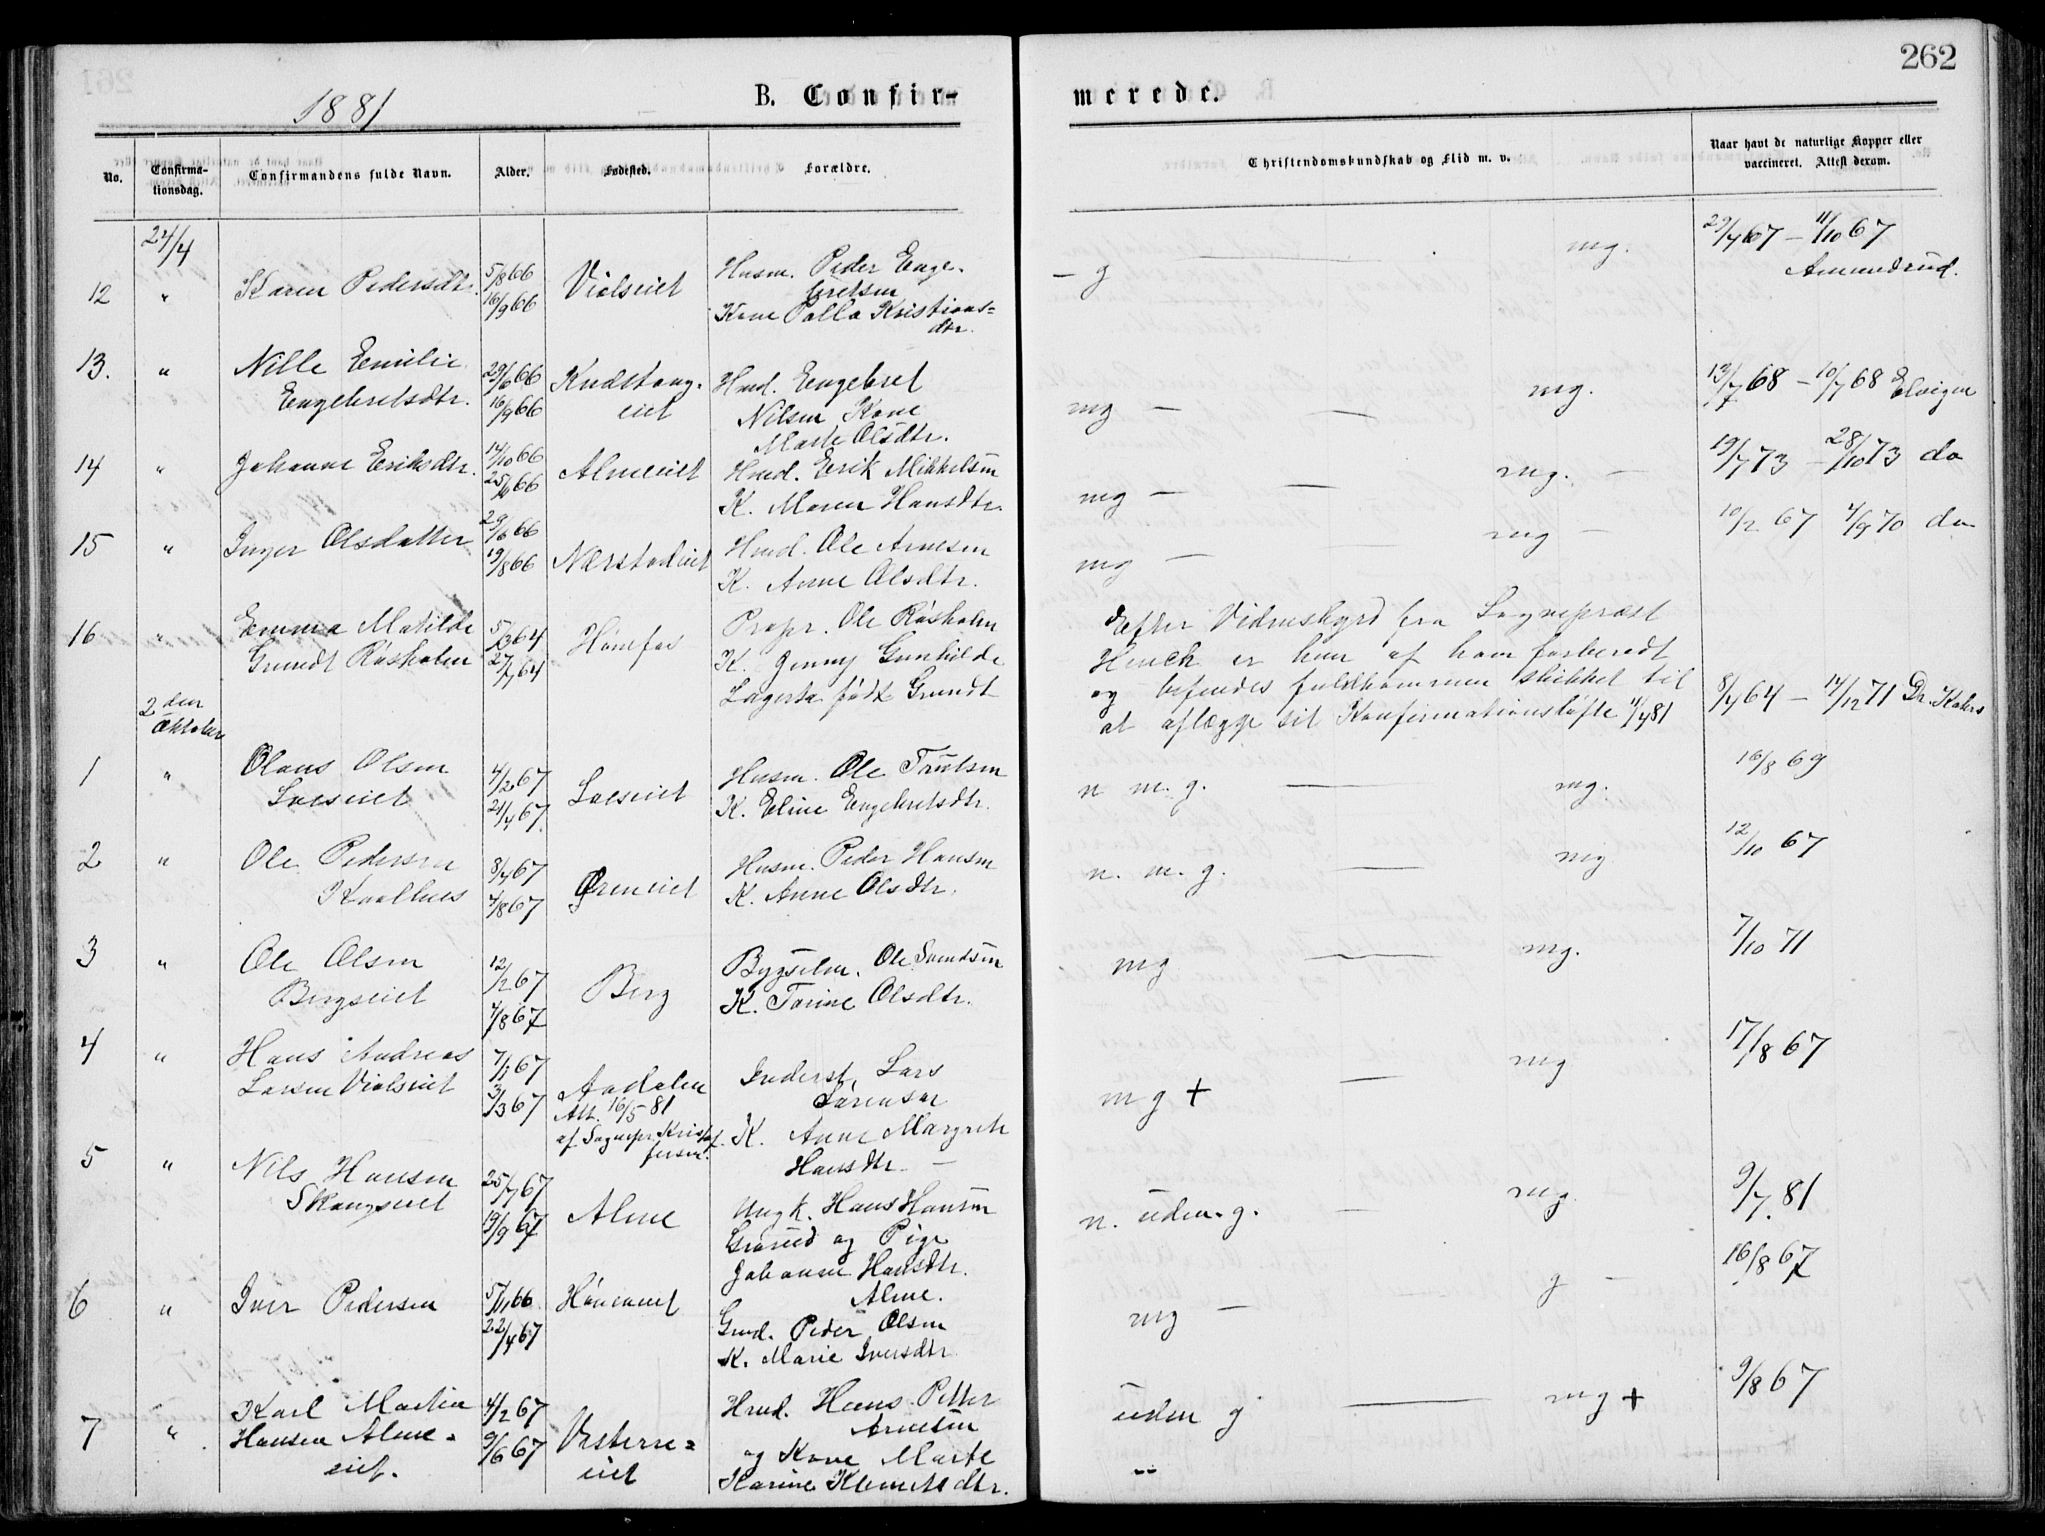 262
1881
B. Confir-
merede.
No.
Confirma-
tionsdag.
Confirmandens fulde Navn.
Alder.
Fødested.
Forældre.
Christendomskundskab og Flid m. v.
Naar havt de naturlige Kopper eller
vaccineret. Attest derom.
24/4
12 " Karen Pedersdtr. 5/8 66 16/9 66
Husm. Peder Enge-
bretsen
Kone Kristians=
dtr.
- g — mg.
29/7 67 – 11/10 67
Amundrud.
13. " Nille Emilie
Engebretsdtr.
29/6 66
16/9 66
eiet
Hmd. Engebret
Nilsen Kone
Marte Olsdtr.
mg — — mg.
13/7 68 – 10/7 68 Elvigen
14 " Johanne Eriksdtr.
14/10 66
66
Almeeiet
Hmd. Erik Mikkelsen
K. Maren Hansdtr.
mg — — mg. —
19/7 73 – 28/10 73 do
15 " Inger Olsdatter
29/6 66
19/8 66
Nærstadeiet
Hmd. Ole Arnesen
K. Anne Olsdtr.
mg — — mg —
10/2 67 4/9 70 do
16 " Emma Matilde
Grundt Røsholm
5/3 64
27/7 64
Hønefos
Propr. Ole Røsholm
K. Jenny Gunhilde
Lagerta født Grundt
Efter Vidnesbyrd fra Sogneprest
Hench er hun af ham forberedt
og befindes fuldkommen skikket til
at aflægge sit Konfirmationsløfte 11/4 81
8/7 64 – 14/12 71 Dr.
2den
Oktober
1 " Olaus Olsen
4/2 67
21/4 67
Husm. Ole
K. Eline Engebretsdtr.
n m. g. — mg.
16/8 69
2 " Ole Pedersen
8/7 67
4/8 67
Øreneiet
Husm. Peder Hansen
K. Anne Olsdtr.
n. m. g. — mg
12/10 67
3 " Ole Olsen
Bergseiet
12/2 67
4/8 67
Berg
Bygselm. Ole Svendsen
K. Torine Olsdtr.
mg — mg.
7/10 71
4 " Hans Andreas
Larsen Violseiet
7/1 67
3/3 67
Aadalen
Att. 16/5 81
af Sognepr. Kristof-
fersen.
Inderst, Lars
Sørensen
K. Anne Margrete
Hansdtr. —
m g + — mg
17/8 67
5 " Nils Hansen
25/7 67
19/9 67
Alme
Ungk. Hans Hansen
og Pige
Johanne Hansdtr.
Alme.
n. uden. g. — mg.
9/7. 81
6 " Iver Pedersen
5/11 66
22/4 67
Gmd. Peder Olsen
K. Marie Iversdtr.
mg — g —
16/8 67
7 " Karl Martin
Hansen Alme-
eiet.
4/2 67
9/6 67
Vesterne=
eiet
Hmd. Hans Petter
Arnesen
og Kone Marte
Karine Klemetsdtr.
uden g — mg +
--
9/8 67